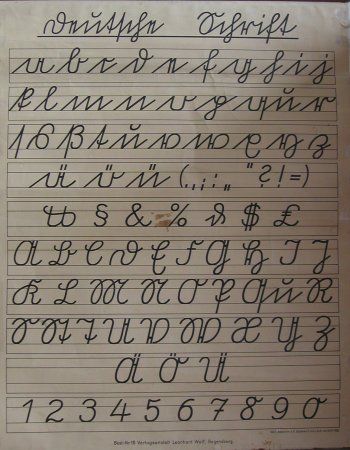 Deutsche Schrift
a b c d e f g h i j
k l m n o p qu r
ſ s ß t u v w x y z
ä ö ü (.,;: „ " ? ! =)
§ & % $ £
A B C D E F G H I J
K L M N O P Qu R
S St T U V W X Y Z
Ä Ö Ü
1 2 3 4 5 6 7 8 9 0
Best-Nr 18 Verlagsanstalt Leonhard Wolf, Regensburg.